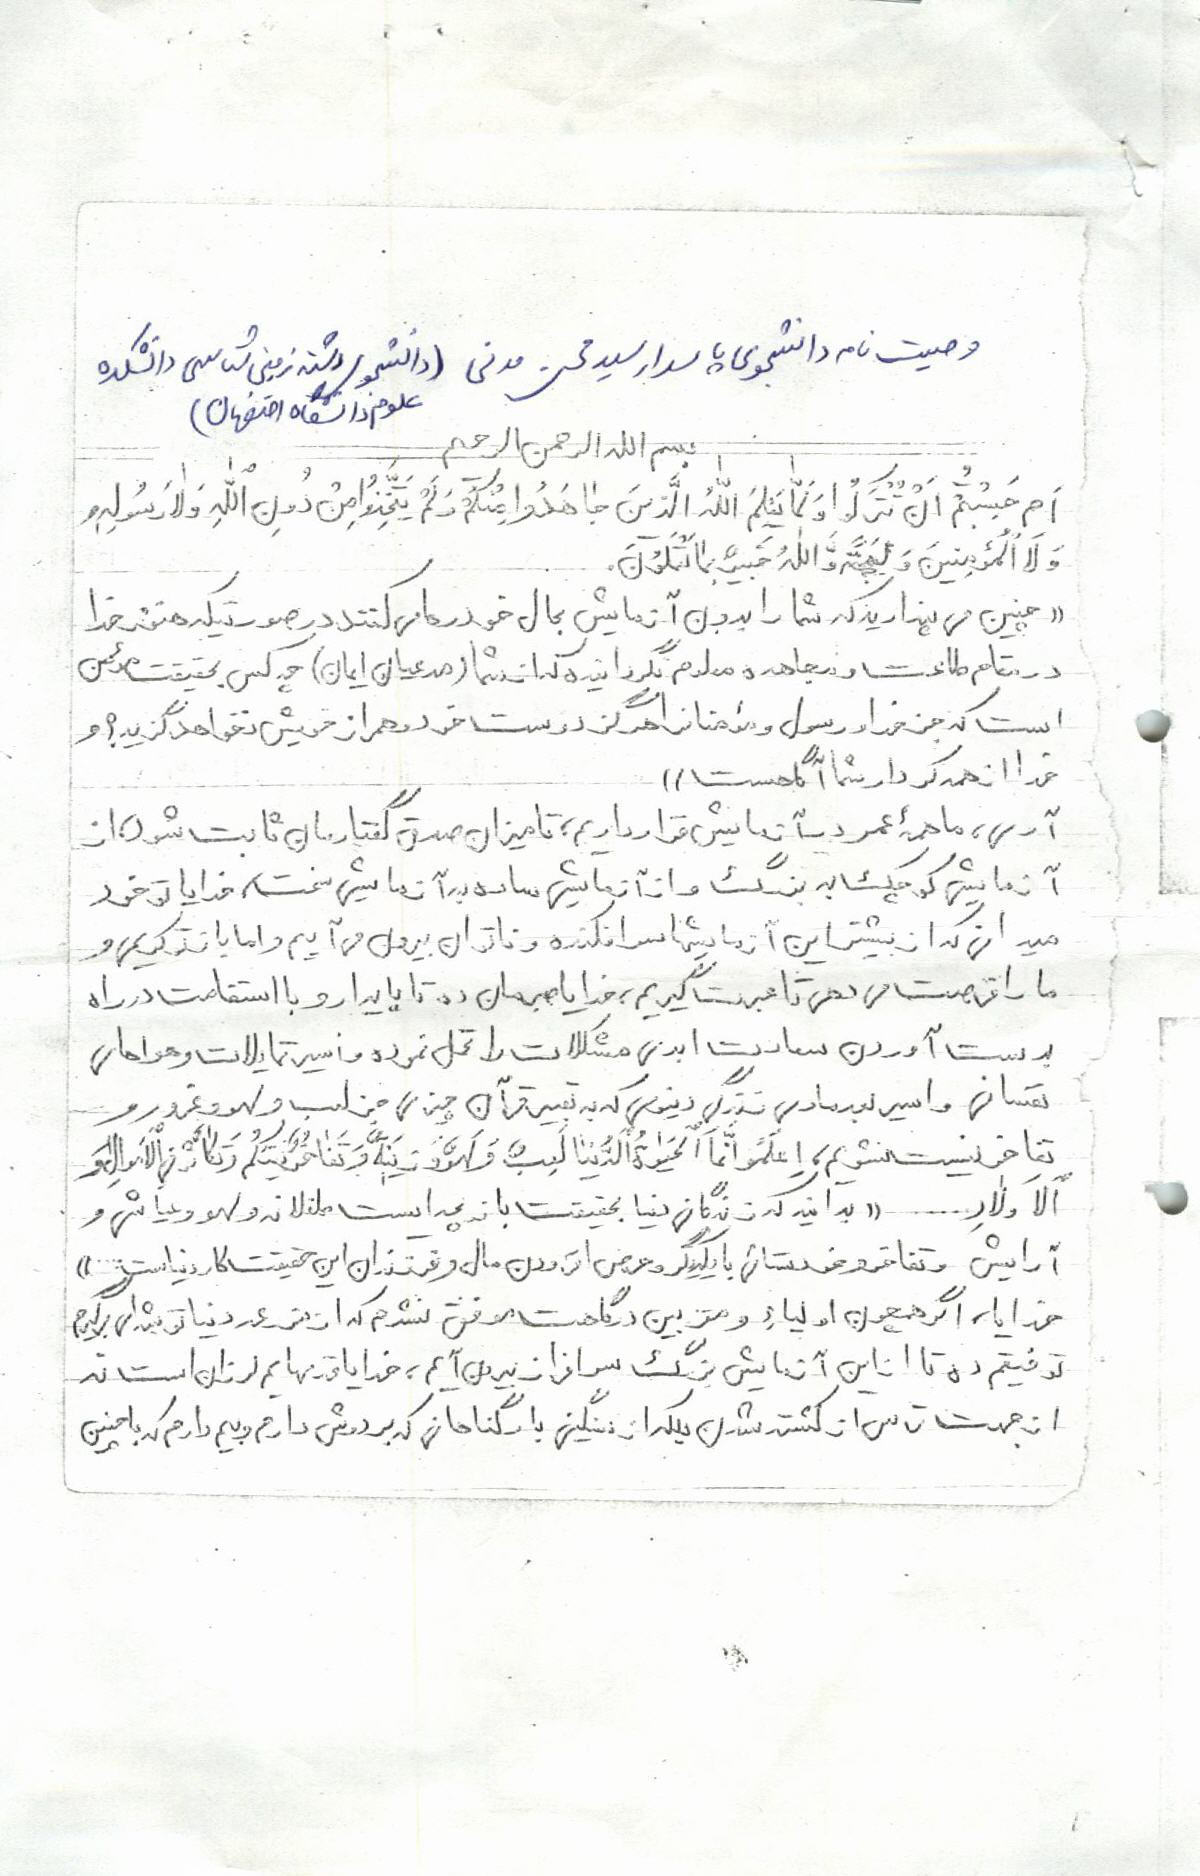 وصیت نامه دانشجوی پاسدار سید محسن مدنی (دانشجوی رشته زمین شناسی دانشکده
علوم دانشگاه اصفهان)
بسم الله الرحمن الرحیم
اَم حَسِبْتُمْ اَنْ تُتْرَکُوا وَلَمّا یَعْلَمِ اللّٰهُ الَّذینَ جاهَدُوا مِنْکُمْ وَلَمْ یَتَّخِذُوا مِنْ دُونِ اللّٰهِ وَلا رَسُولِهِ و
وَلَا اَلْمُؤمِنینَ وَلیجَةً وَاللّٰهُ خَبیرٌ بِما تَعْمَلُونَ.
«چنین می پندارید که شما را بدون آزمایش بحال خود رها می کنند در صورتیکه هنوز خدا
در مقام طاعت و مجاهده معلوم نگردانیده که از شما (مدعیان ایمان) چه کس بحقیقت مؤمن
است که جز خدا و رسول و مؤمنان را هرگز دوست خود و همراز خویش نخواهد گزید؟ و
خدا از همه کردار شما آگاهست»
آری، ما همۀ عمر در آزمایش قرار داریم، تا میزان صدق گفتارمان ثابت شود، از
آزمایش کوچک به بزرگ و از آزمایش ساده به آزمایش سخت، خدایا تو خود
میدانی که از بیشتر این آزمایشها سرافکنده و ناتوان بیرون می آییم و اما باز تو کریمی و
ما را فرصت می دهی تا عبرت گیریم، خدایا صبرمان ده تا پایدار و با استقامت در راه
بدست آوردن سعادت ابدی مشکلات را تحمل نموده و اسیر تمایلات و هواهای
نفسانی و اسیر بعد مادی زندگی دنیوی که به تعبیر قرآن چیزی جز لعب و لهو و غرور و
تفاخر نیست نشویم، اِعلَمُوا اَنَّمَا اَلْحَیٰوةُ اَلدُّنیٰا لَعِبٌ وَ لَهْوٌ وَ زینَةٌ وَ تَفاخُرٌ بَیْنَکُم وَ تَکاثُرٌ فِی الْاَموالِ وَ
اَلاَولادِ ..... «بدانید که زندگانی دنیا بحقیقت بازیچه ایست طفلانه و لهو و عیاشی و
آرایش و تفاخر و خودستائی با یکدیگر و حرص افزودن مال و فرزندان این حقیقت کار دنیاست»
خدایا، اگر همچون اولیاء و مقربین درگاهت موفق نشدم که از مزرعه دنیا توشه ای برگیرم
توفیقم ده تا از این آزمایش بزرگ سرافراز بیرون آیم، خدایا قدمهایم لرزان است نه
از جهت ترس از کشته شدن بلکه از سنگینی بار گناهانی که بر دوش دارم و بیم دارم که با چنین